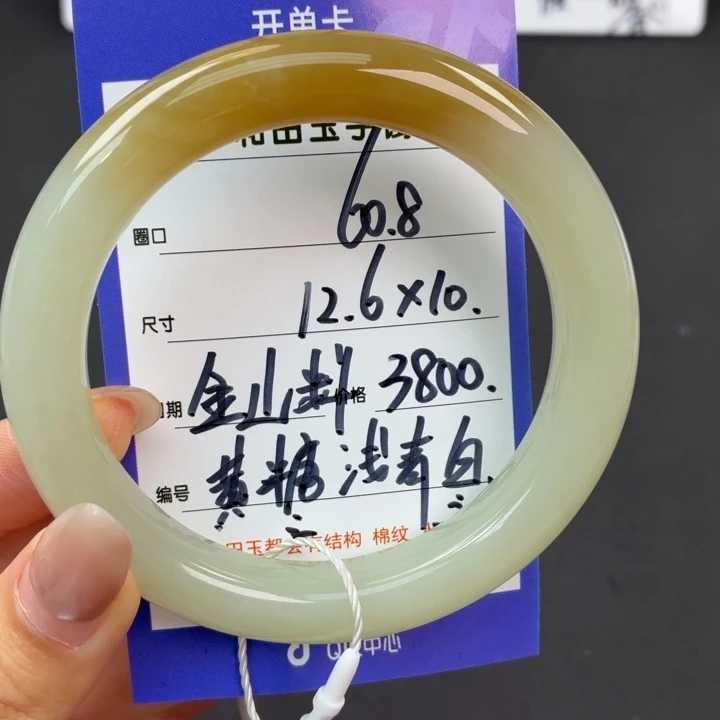 开单卡
和田玉手镯
圈口 60.8
尺寸 12.6×10.
日期 金山料 价格 3800.
编号 黄糖浅青白
田玉都会有结构 棉纹
QIC中心